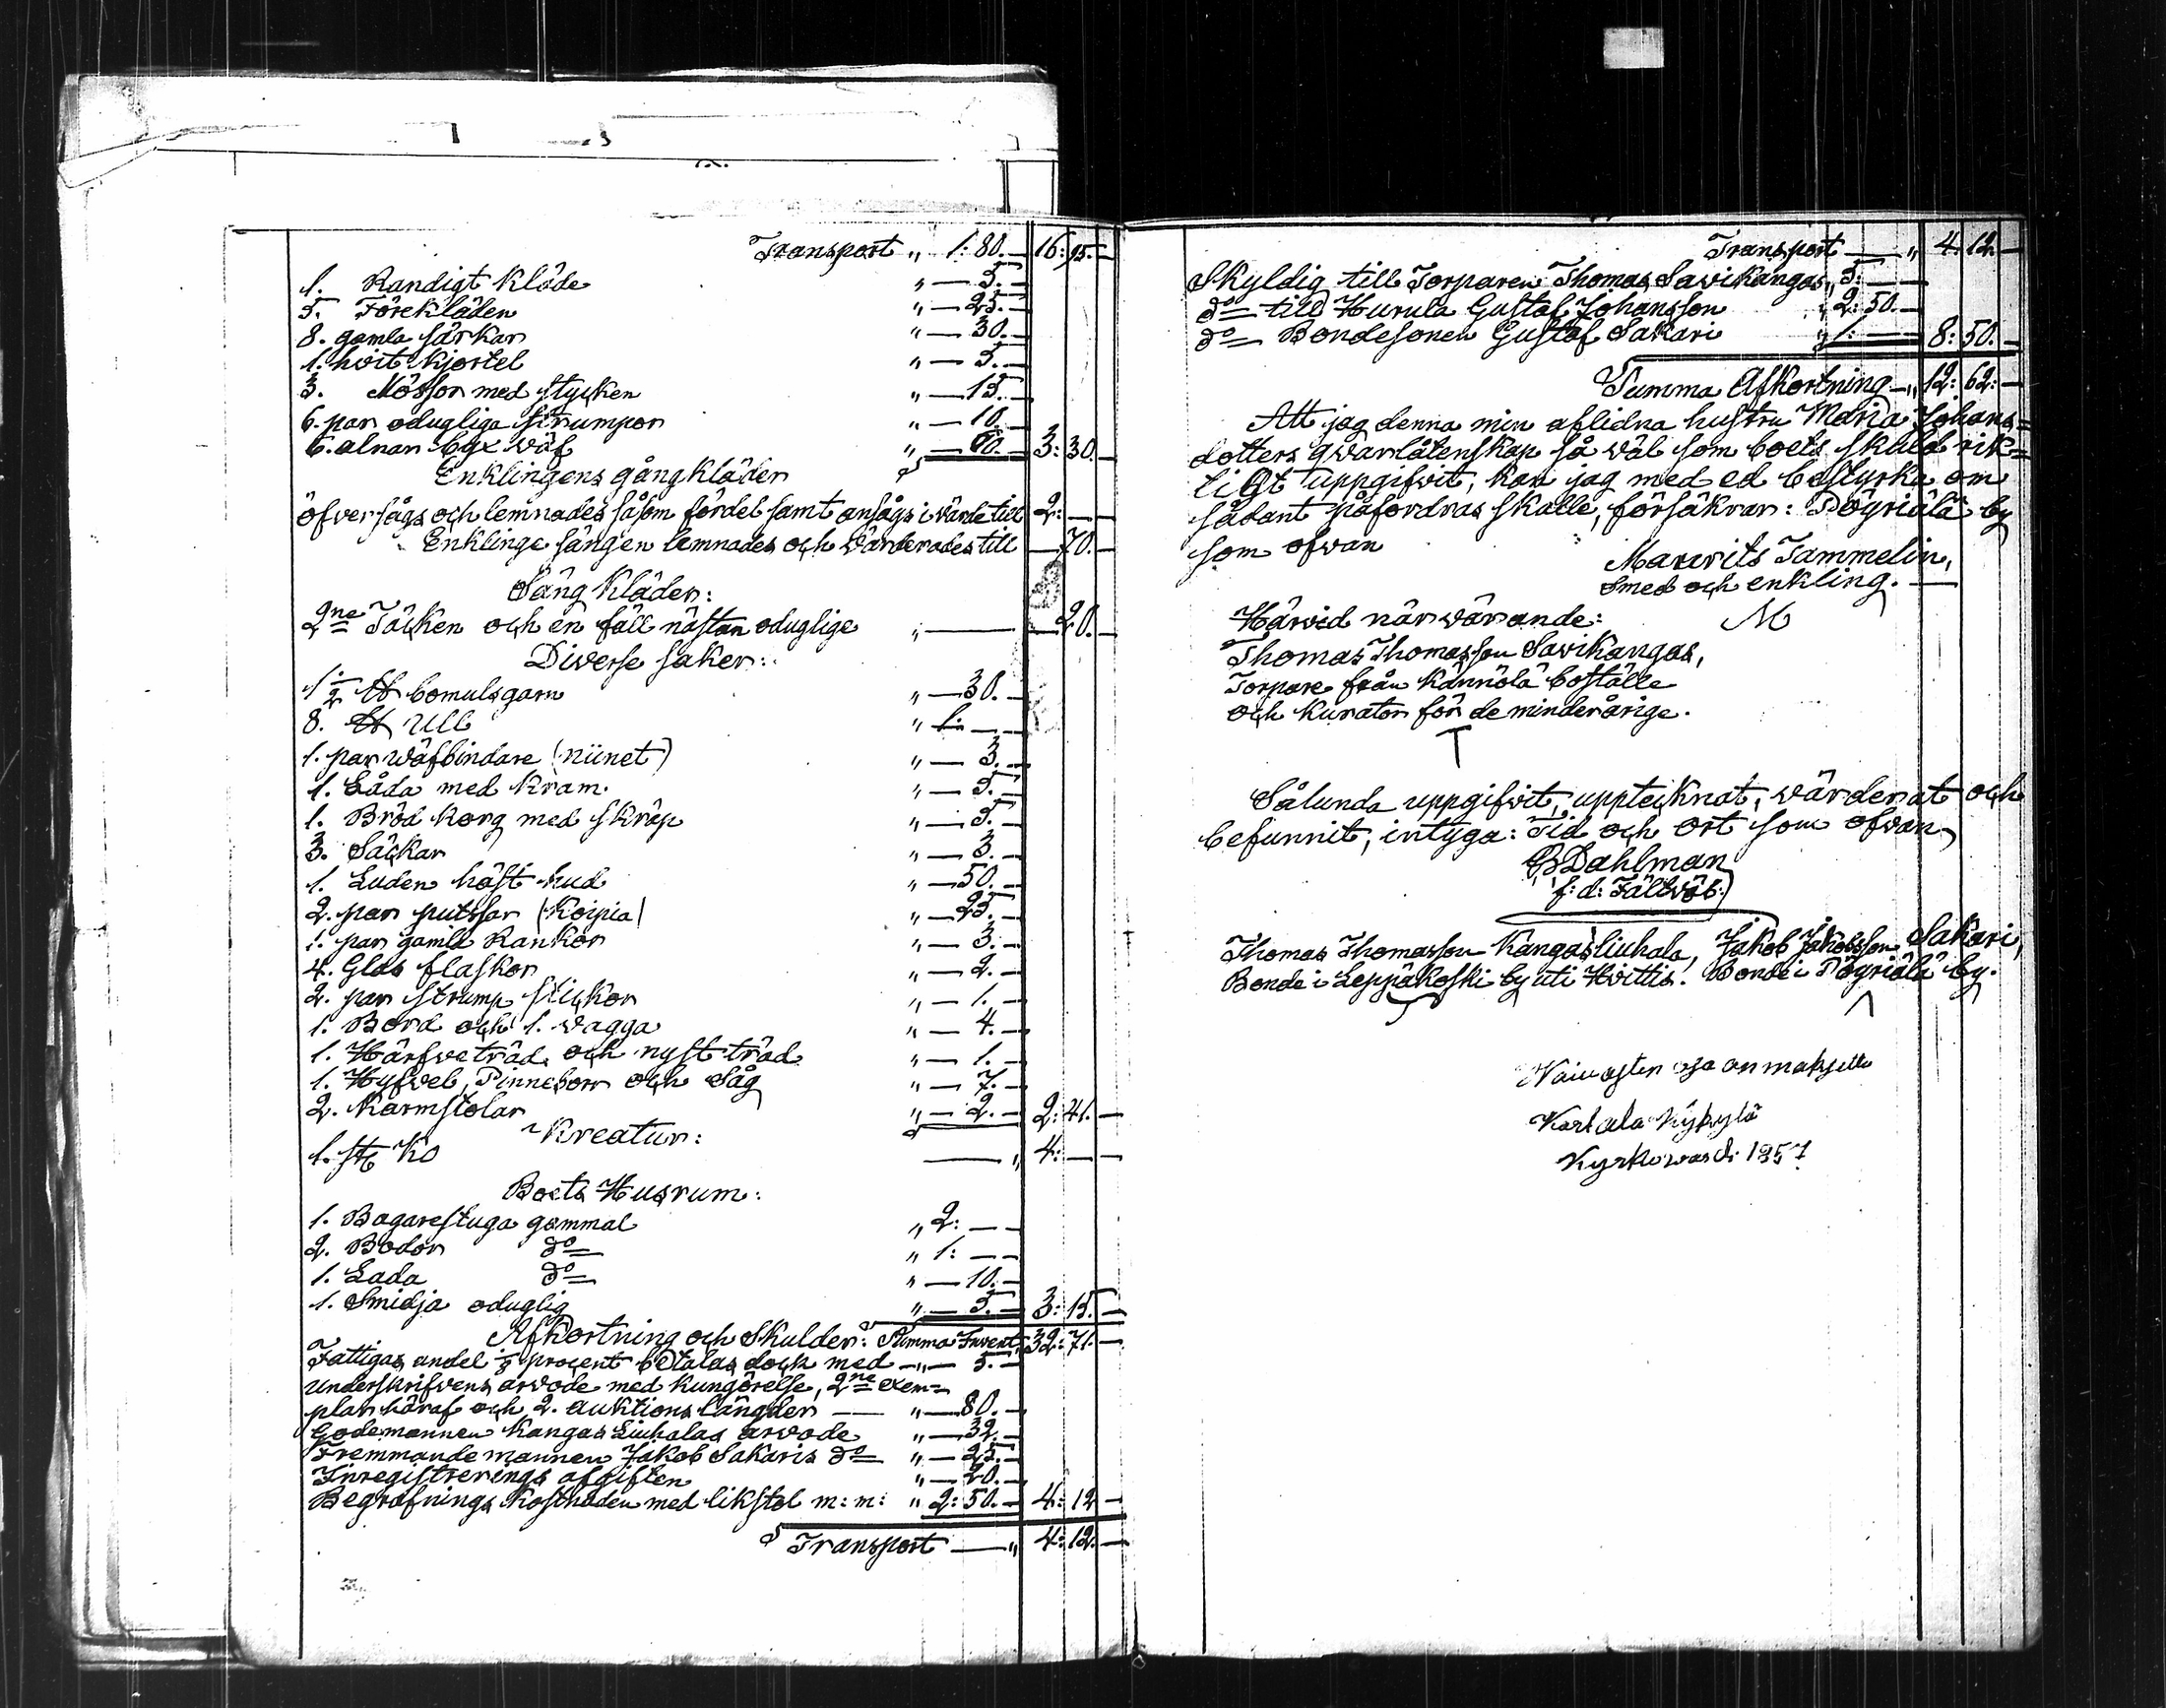 Transport " 1: 80. — 16: 95. —
1. Randigt Kläde " — 5. —
5. Förekläden " — 25. —
8. gamla särkar " — 30. —
1. hvit Kjortel " — 5. —
3. Mössor med stycken " — 15. —
6. par odugliga strumpor " — 10. —
6. alnar byx wäf " — 60. — 3: 30. —
Enklingens gångkläder
öfversågs och lemnades såsom fördel samt ansågs i värde till 2: — —
Enklinge sängen lemnades och värderades till — 70. —
Säng Kläder:
2ne Täcken och en fäll nästan odugliga " — 20. —
Diverse saker:
1/2 ℔ bomulsgarn " — 30. —
8. ℔ Ull " 1: — —
1. par wäfbindare (niinet) " — 3. —
1. Låda med Kram. " — 5. —
1. Bröd Korg med skräp " — 5. —
3. Säckar " — 3. —
1. Luden häst hud " — 50. —
2. par putsar (Koipia) " — 25. —
1. par gamla Rankor " — 3. —
4. Glas flaskor " — 2. —
2. par strump stickor " — 1. —
1. Bord och 1. vagga " — 4. —
1. Härfveträd och nyst träd " — 1. —
1. Hyfvel, Pinneborr och Såg " — 7. —
2. Karmstolar " — 2. — 2: 41. —
Kreatur:
1. st Ko — " 4: — —
Boets Husrum:
1. Bagarestuga gammal " 2: — —
2. Bodor do " 1: — —
1. Lada do " — 10. —
1. Smidja oduglig " — 5. — 3: 15. —
Afkortning och Skulder: Summa Invent. 32: 71. —
Fattigas andel procent betalas dock med — " — 5. —
Underskrifvens arvode med Kungörelse, 2ne exem=
plar häraf och 2. auktions längder — " — 80. —
Godemannen Kangas Liuhalas arvode " — 32. —
Fremmande mannen Jakob Sakaris do " — 25. —
Inregistrerings afgiften " — 20. —
Begrafnings Kostnaden med likstol m: m: " 2: 50. — 4: 12 —
Transport — " 4: 12. —
Transport — " 4: 12. —
Skyldig till Torparen Thomas Sawikangas " 5: — —
do till Hurula Gustaf Johansson " 2: 50. —
do Bondesonen Gustaf Sakari " 1: — 8: 50. —
Summa Afkortning — " 12: 62: —
Att jag denna min aflidna hustru Maria Johans=
dotters qwarlåtenskap så wäl som boets skuld rik=
tigt uppgifvit, kan jag med ed bestyrka om
sådant påfordras skulle, försäkrar: Pögriälä by
som ofvan
Maurits Tammelin,
Smed och enkling.
M
Härvid närwarande:
Thomas Thomasson Sawikangas,
Torpare från Kännölä boställe
och Kurator för de minderårige.
T
Sålunda uppgifvit, upptecknat, värderat och
befunnit, intyga: Tid och ort som ofvan
GDahlman
f: d: Fältväb:
Thomas Thomasson Kangasliuhala, Jakob Jakobsson Sakari,
Bonde i Leppäkoski by uti Hvittis. Bonde i Pögriälä by.
Waiwasten osa on maksettu
1857